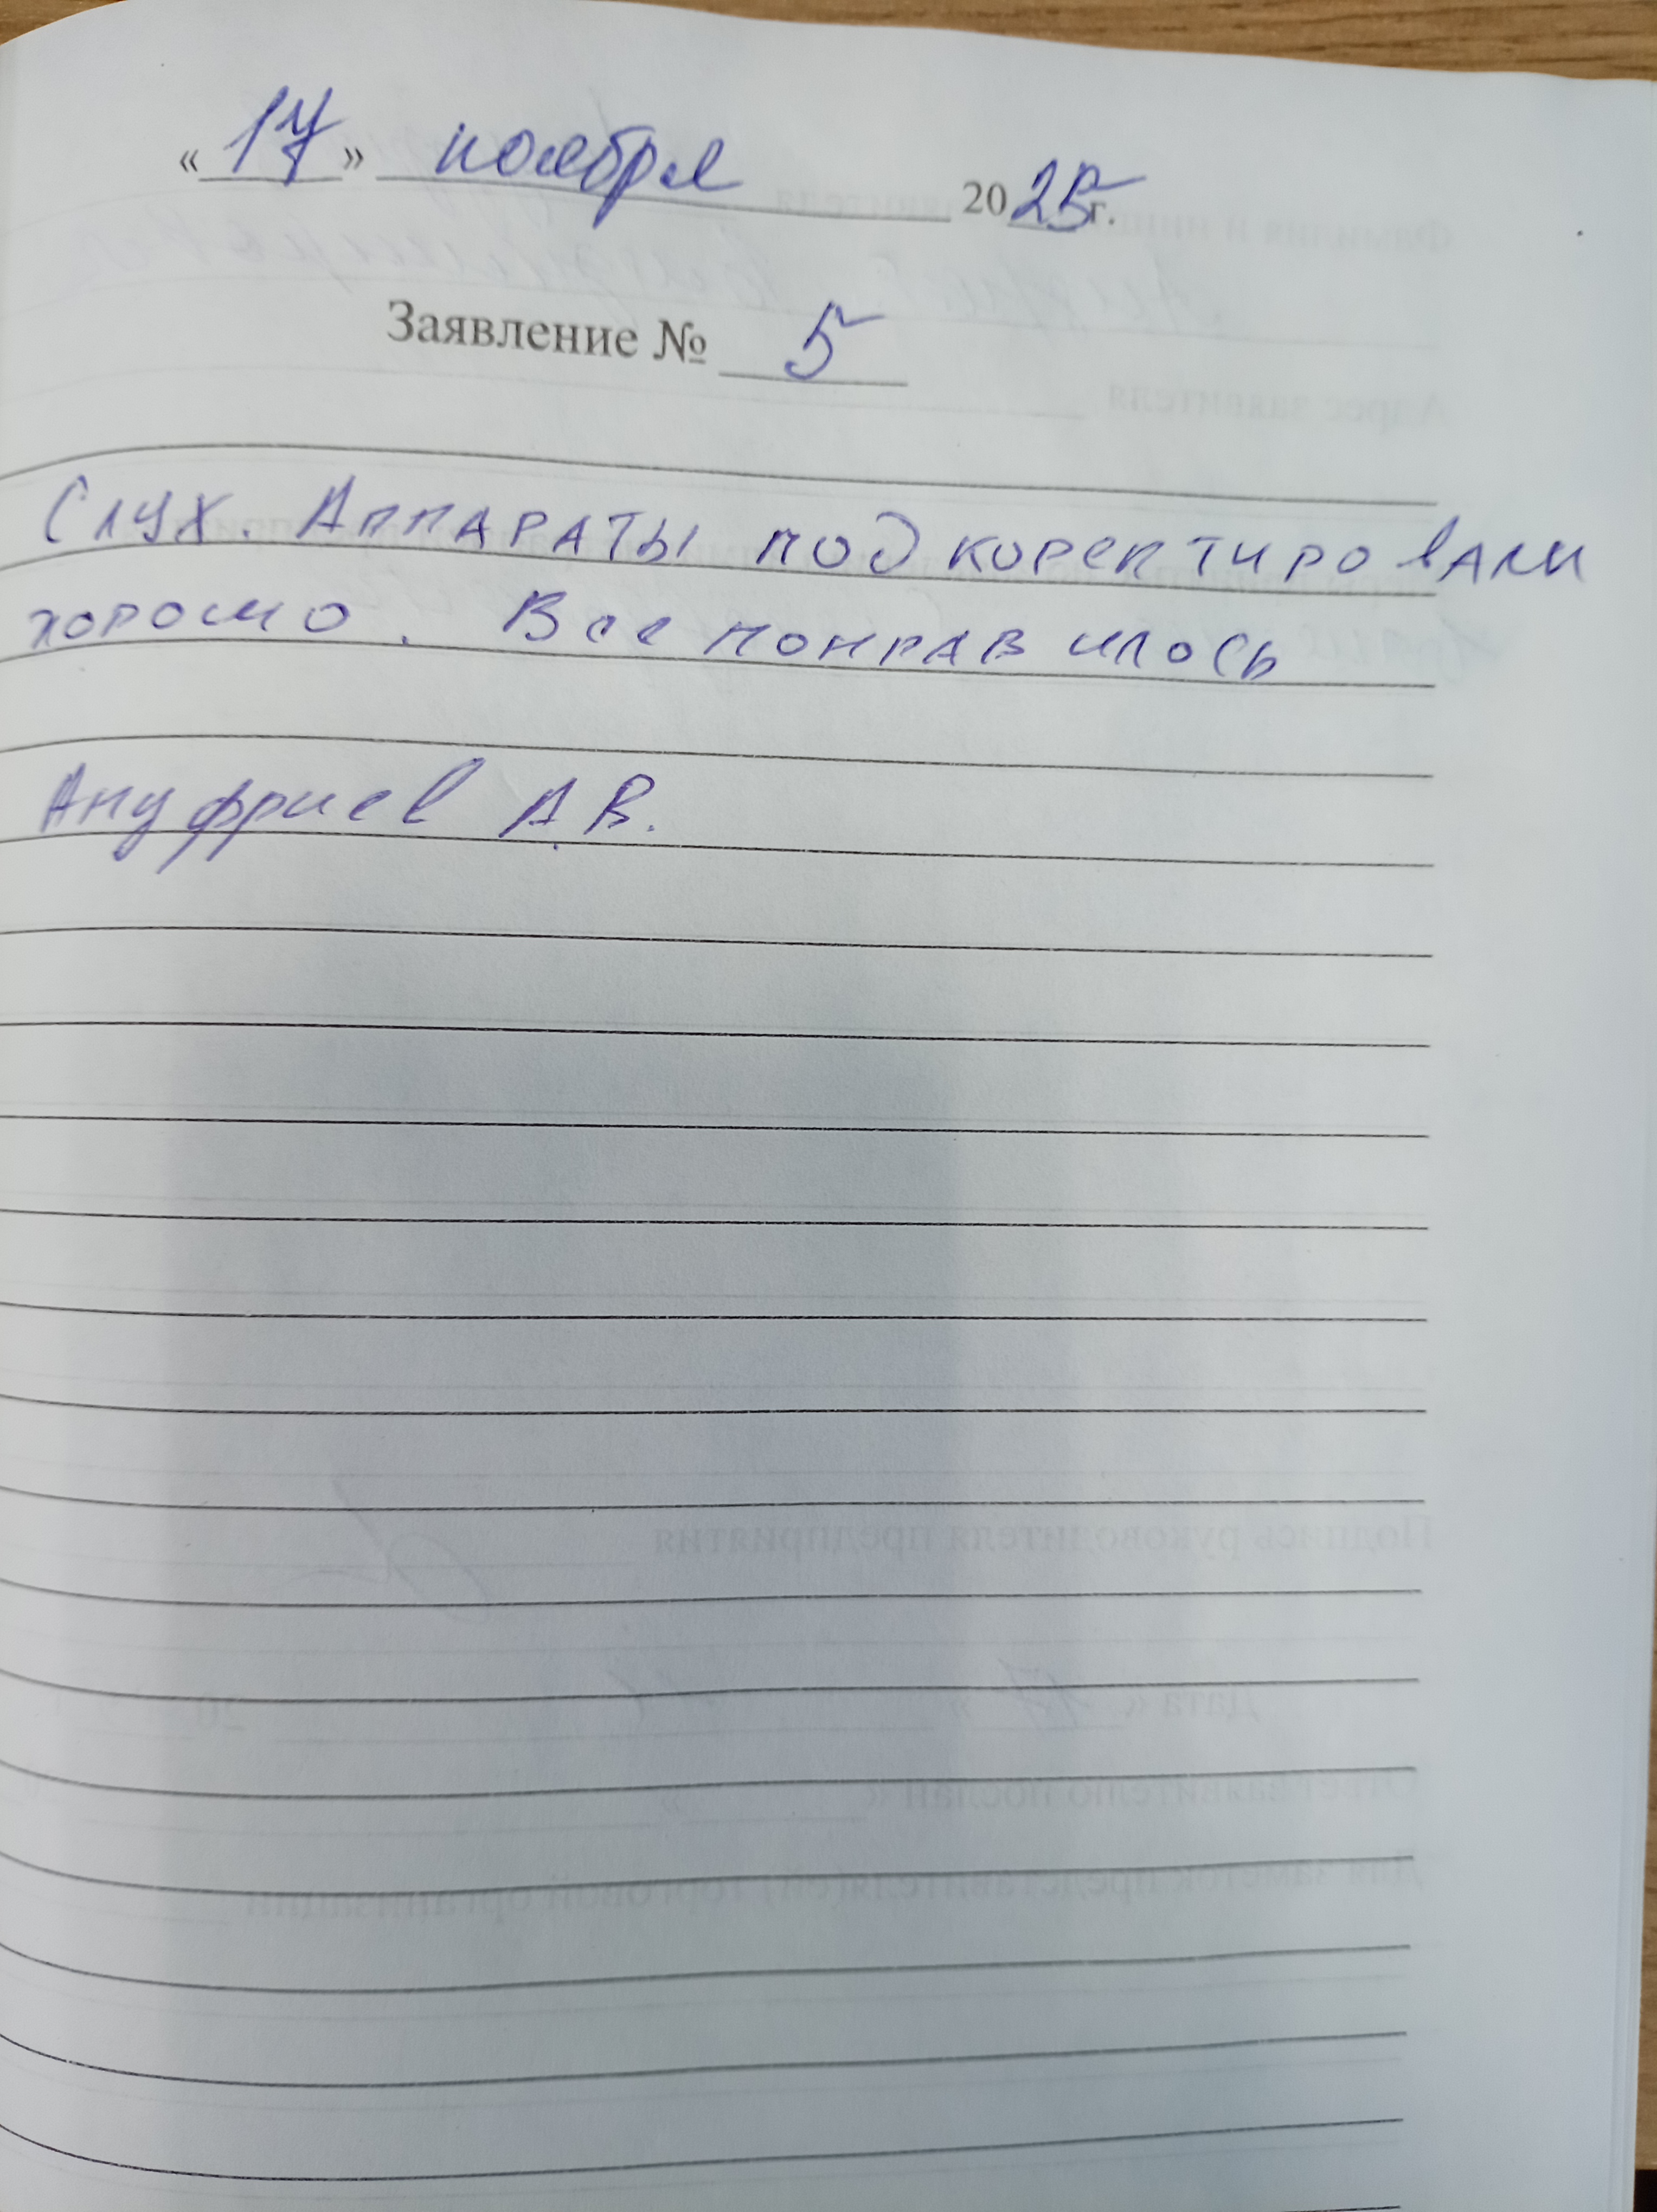 «17» ноября 2025г.
Заявление № 5
Слух. Аппараты подкоректировали
хорошо. Все понравилось
Ануфриев А.В.